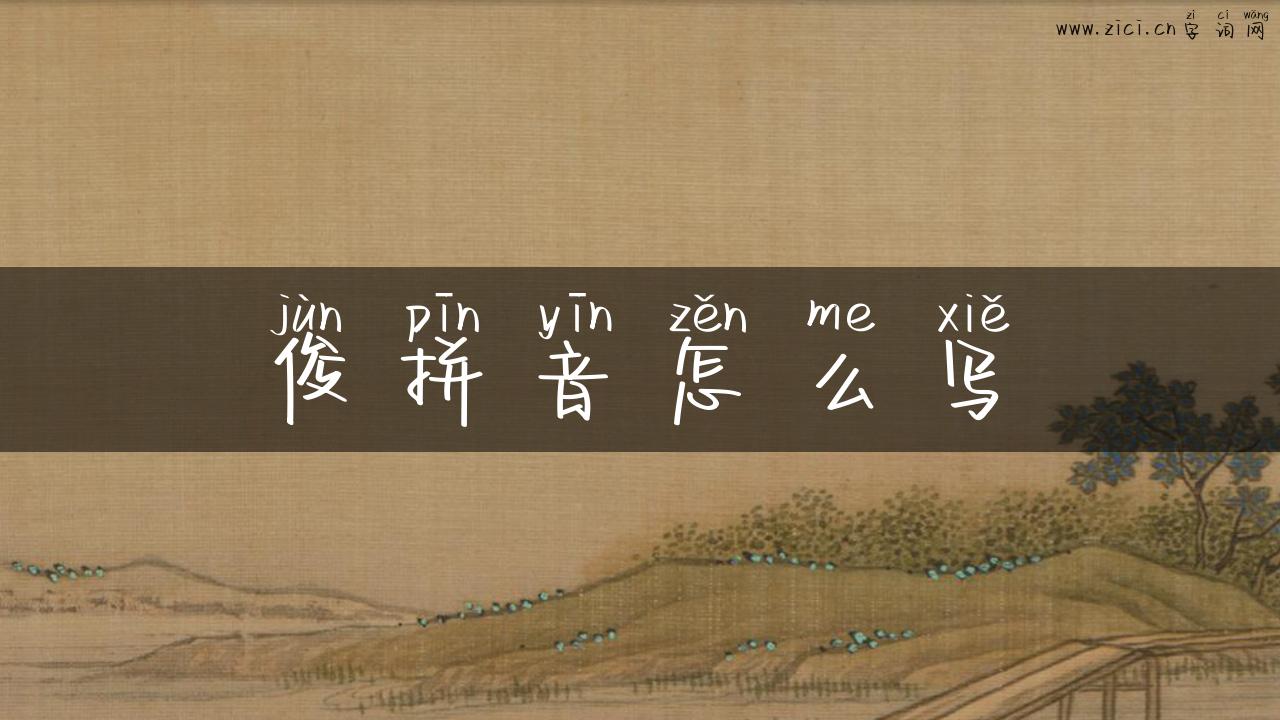 zì cí wǎng
www.zici.cn字词网
jùn pīn yīn zěn me xiě
俊拼音怎么写